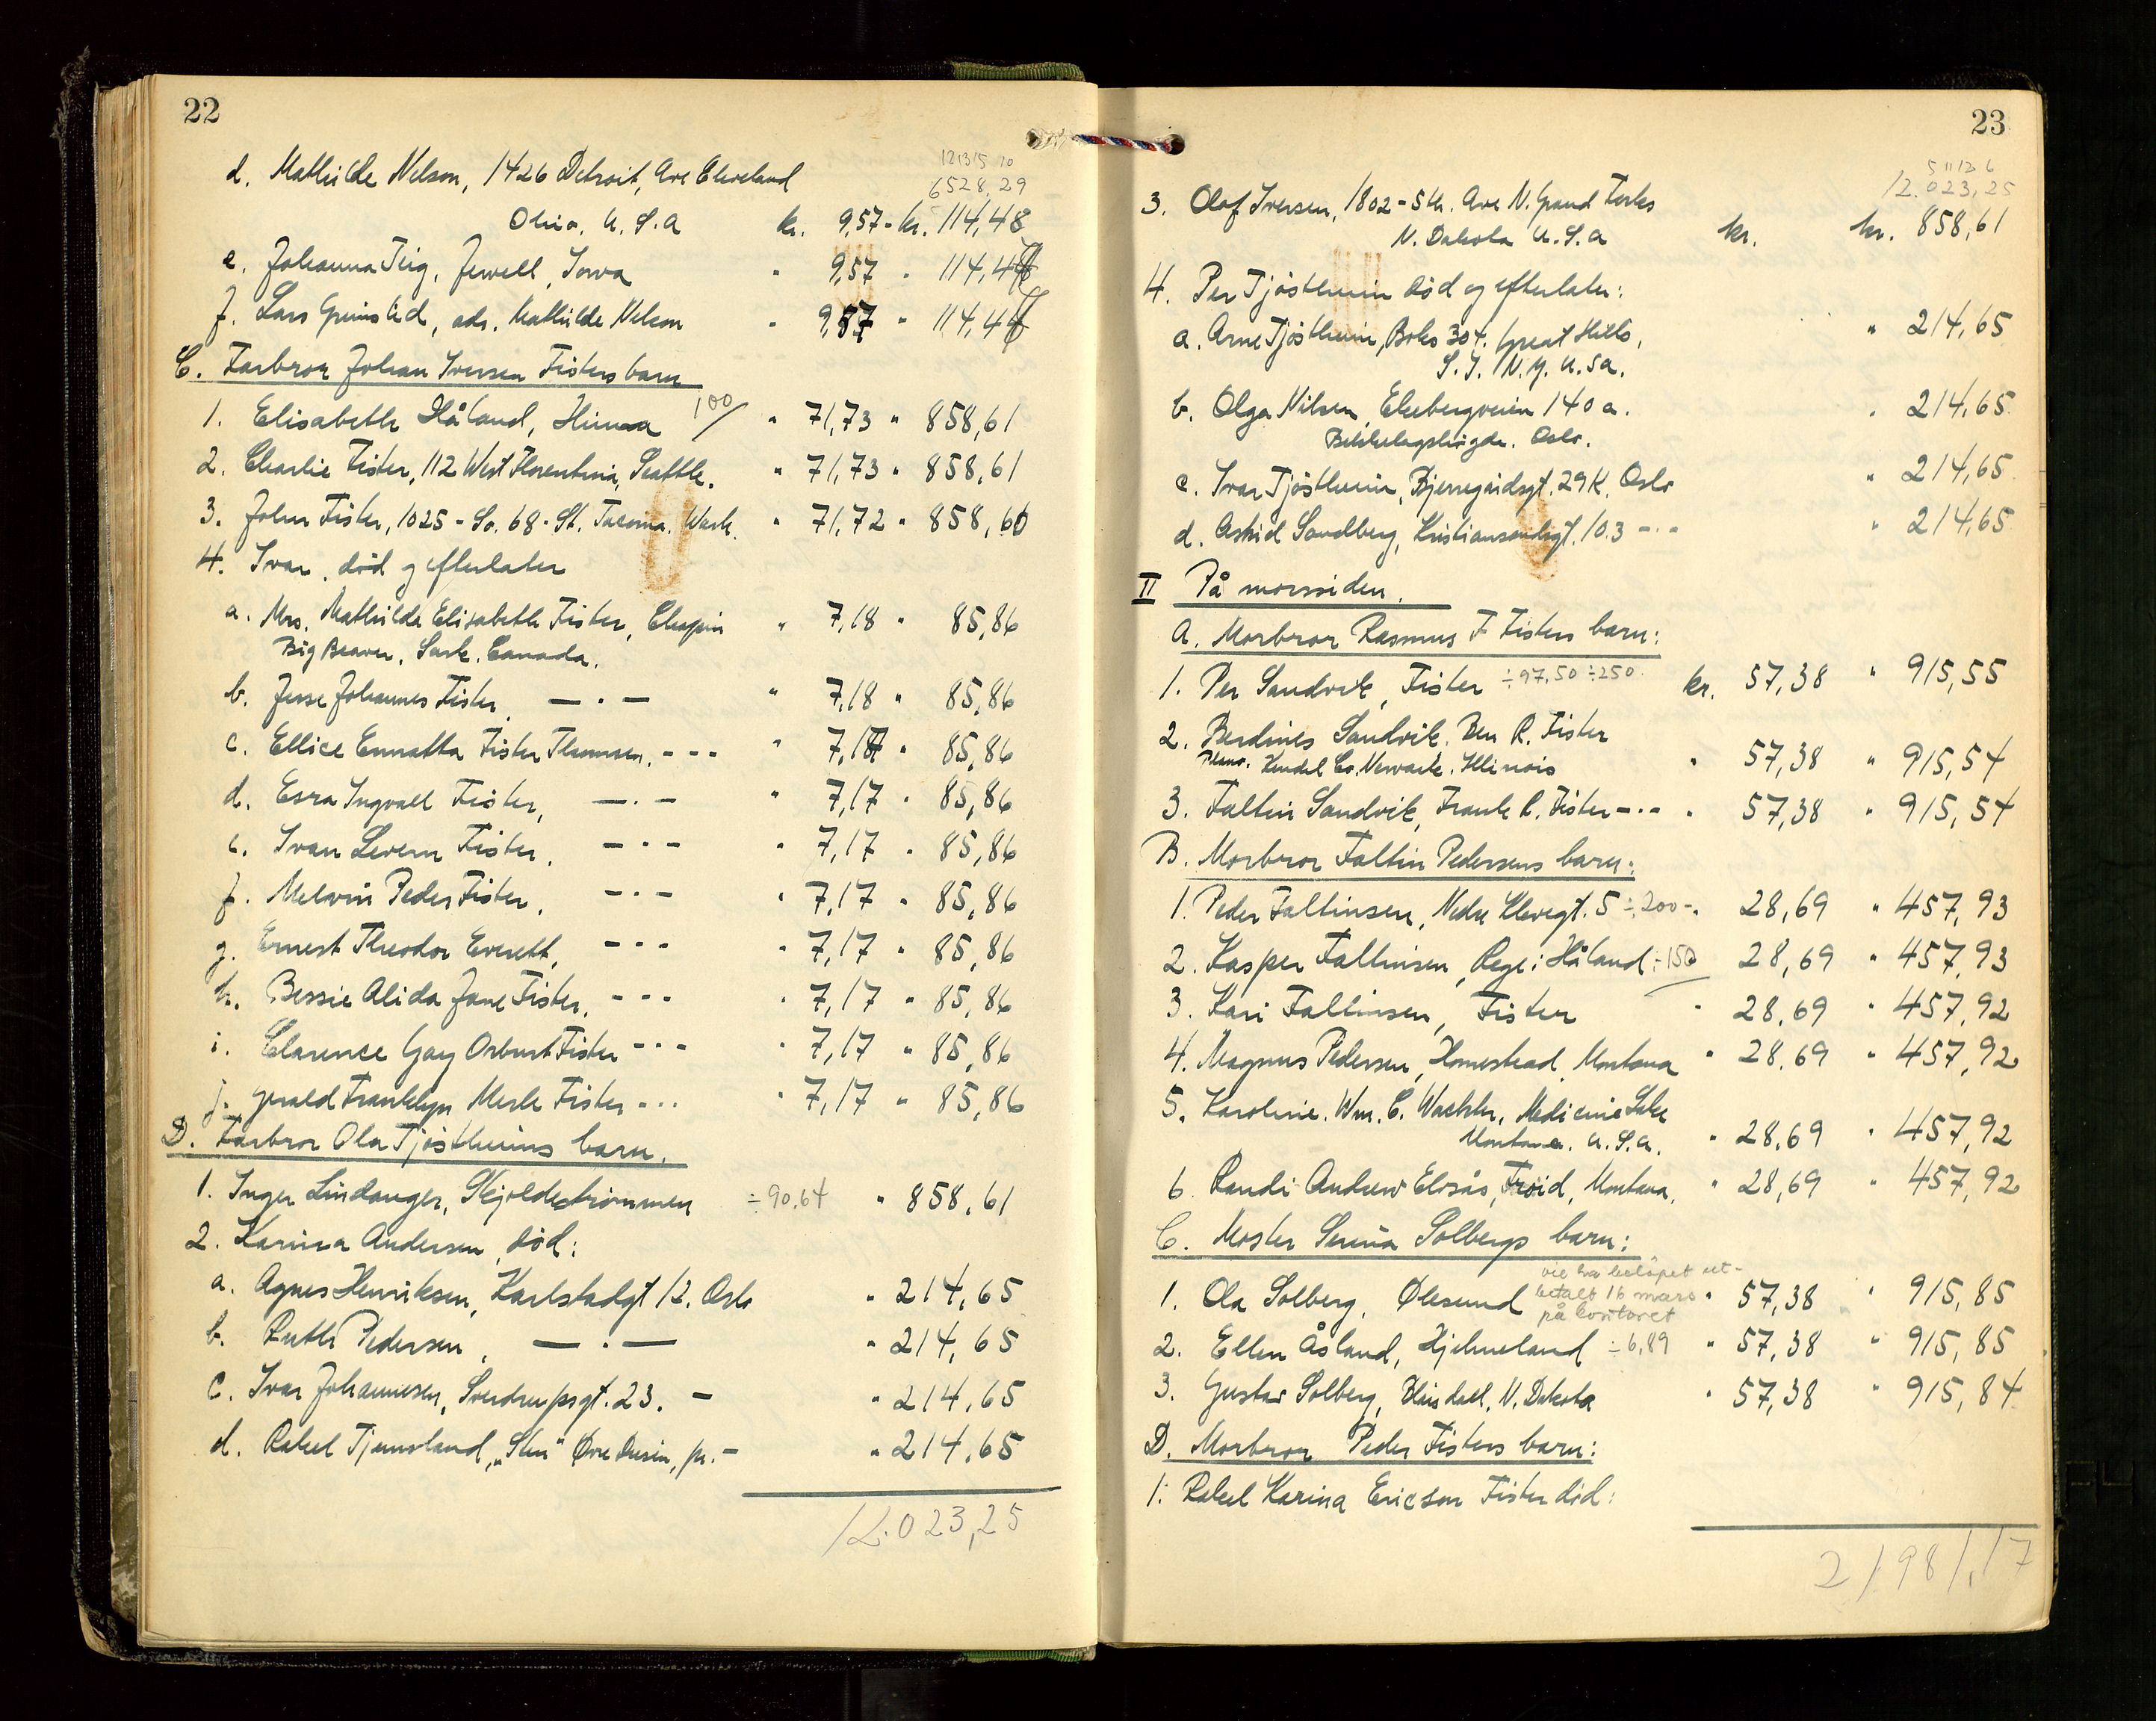 22
121315 10
6528,29
d. Mathilde Nelson, 1426 Detroit, Ave Cleveland
Ohio. U. S. A kr. 9,57 - kr. 114,48
e. Johanna Teig, Jewell, Iowa " 9,57 " 114,47
f. Lars Grimslid, adr. Mathilde Nelson " 9,57 " 114,47
C. Farbror Johan Iversen Fisters barn
1. Elisabeth Håland, Hinna 100/ " 71,73 " 858,61
2. Charlie Fister, 112 West Florentina, Seattle. " 71,73 " 858,61
3. John Fister, 1025 - So. 68 - St. Tacoma. Wash. " 71,72 " 858,60
4. Ivar, død og efterlater
a. Mrs. Mathilda Elisabeth Fister, Chapin " 7,18 " 85,86
Big Beaver. Sask. Canada.
b. Jesse Johannes Fister, — . — " 7,18 " 85,86
c. Ellice Ennatta Fister Thomsen, - - - " 7,17 " 85,86
d. Esra Ingvall Fister, — . — " 7,17 " 85,86
e. Ivan Severn Fister, — . — " 7,17 " 85,86
f. Melvin Peder Fister, — . — " 7,17 " 85,86
g. Ernest Theodor Everett, - - - " 7,17 " 85,86
h. Bessie Alida Jane Fister, - - - " 7,17 " 85,86
i. Clarence Gay Fister - - - " 7,17 " 85,86
j. Gerald Franklyn Merle Fister - - - " 7,17 " 85,86
D. Farbror Ola Tjøstheims barn.
1. Inger Lindanger, Skjoldestrømmen ÷ 90,64 " 858,61
2. Karina Andersen, død:
a. Agnes Henriksen, Karlstadgt 12. Oslo " 214,65
b. Ruth Pedersen, — . — " 214,65
c. Ivar Johannesen, Sverdrupsgt. 23. — " 214,65
d. Rakel Tjemsland, Øvre pr. — " 214,65
12.023,25
23
5 11 12 6
12.023,25
3. Olof Iversen, 1802 - 5th. Ave N. Grand Forks
N. Dakota U. S. a kr. kr. 858,61
4. Per Tjøstheim død og efterlater:
a. Arne Tjøstheim, Boks 304. Great Hills, " 214,65
S. I. N. Y. U. S a.
b. Olga Nilsen, Ekebergveien 140 a. " 214,65
Bekkelagshøgda. Oslo.
c. Ivar Tjøstheim, Bjerregårdsgt. 29 K. Oslo " 214,65
d. Astrid Sandberg, Kristiansandsgt. 10.3 - . - " 214,65
II På morssiden.
A. Morbror Rasmus F Fisters barn:
1. Per Sandvik, Fister ÷ 97,50 ÷ 250. kr. 57,38 " 915,55
2. Berdines Sandvik. Ben R. Fister
Kendel Co. Newark. Illinois " 57,38 " 915,54
3. Faltin Sandvik, Frank R. Fister - . - " 57,38 " 915,54
B. Morbror Faltin Pedersens barn:
1. Peder Faltinsen, Nedre Klevegt. 5 ÷ 200 - " 28,69 " 457,93
2. Kasper Faltinsen, Rege i Håland ÷ 150 28,69 " 457,93
3. Kari Faltinsen, Fister " 28,69 " 457,92
4. Magnus Pedersen, Homestead, Montana " 28,69 " 457,92
5. Karoline. Wm. C. Wachter. Medicine Lake
Montana. U. S. a. " 28,69 " 457,92
6. Randi Andrew Elvsås, Froid, Montana. " 28,69 " 457,92
C. Moster Serina Solbergs barn:
vil ha beløpet ut-
betalt 16 mars
på kontoret
1. Ola Solberg, Ølesund " 57,38 " 915,85
2. Ellen Åsland, Hjelmeland ÷ 6,89 " 57,38 " 915,85
3. Gustav Solberg, N. Dakota " 57,38 " 915,84
D. Morbror Peder Fisters barn:
1. Rakel Karina Ericson Fister død:
21981,17